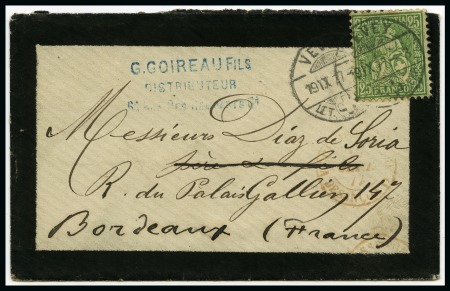 G. GOIREAU FILS
DISTRIBUTEUR
VEVEY
19 IX 7
LET.
25
FRANCO
Messieurs Diaz de Soria
père & fils
R. du Palais Gallien 147
Bordeaux (France)